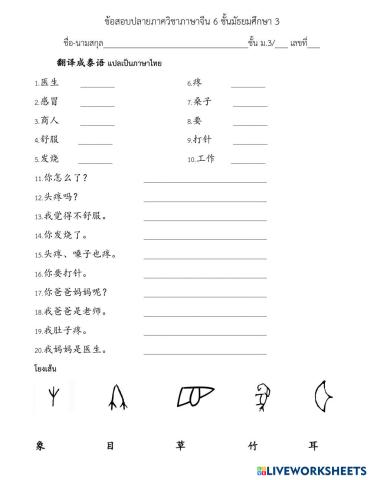 ข้อสอบปลายภาควิชาภาษาจีน 6 ชั้นมัธยมศึกษา 3
ชื่อ-นามสกุล________________________ชั้น ม.3/___ เลขที่___
翻译成泰语 แปลเป็นภาษาไทย
1.医生 ______ 6.疼 ______
2.感冒 ______ 7.桑子 ______
3.商人 ______ 8.要 ______
4.舒服 ______ 9.打针 ______
5.发烧 ______ 10.工作 ______
11.你怎么了? ____________________
12.头疼吗? ____________________
13.我觉得不舒服。 ____________________
14.你发烧了。 ____________________
15.头疼、嗓子也疼。 ____________________
16.你要打针。 ____________________
17.你爸爸妈妈呢? ____________________
18.我爸爸是老师。 ____________________
19.我肚子疼。 ____________________
20.我妈妈是医生。 ____________________
โยงเส้น
象 目 草 竹 耳
LIVEWORKSHEETS